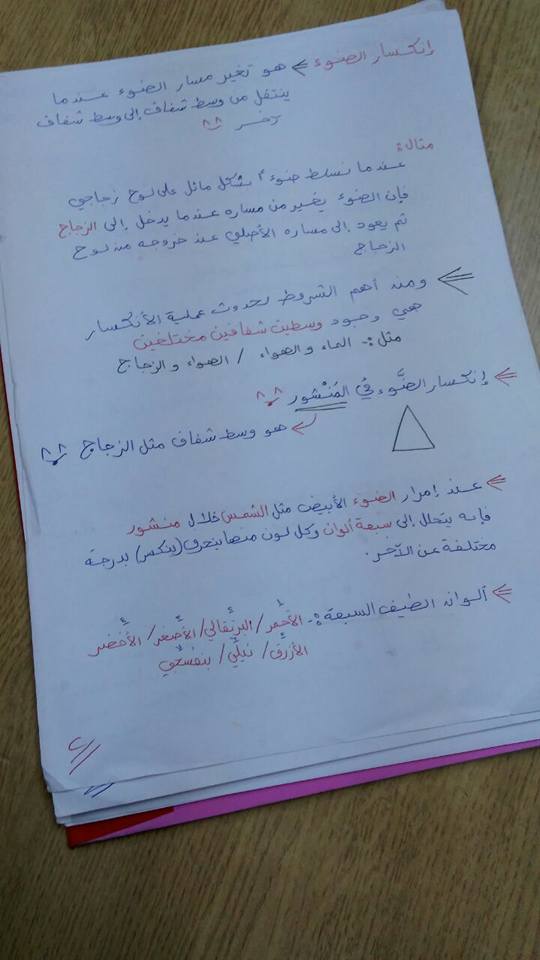 إنكسار الضوء ⇐ هو تغير مسار الضوء عندما
ينتقل من وسط شفاف إلى وسط شفاف
آخر ^^
مثال:
عندما نسلط ضوءاً بشكل مائل على لوح زجاجي
فإن الضوء يغير من مساره عندما يدخل إلى الزجاج
ثم يعود إلى مساره الأصلي عند خروجه من لوح
الزجاج
⇐ ومند أهم الشروط لحدوث عملية الأنكسار
هي وجود وسطين شفافين مختلفين
مثل :- الماء والهواء / الهواء والزجاج
⇐ إنكسار الضَّوء في المَنْشور ^^
هو وسط شفاف مثل الزجاج ^^
⇐ عند إمرار الضوء الأبيض مثل الشمس خلال منشور
فإنه يتحلل إلى سبعة ألوان وكل لون منها ينحرف (ينكسر) بدرجة
مختلفة عن الآخر.
⇐ ألوان الطيف السبعة :- الأحمر / البرتقالي / الأصفر / الأخضر
الأزرق / نيلي / بنفسجي